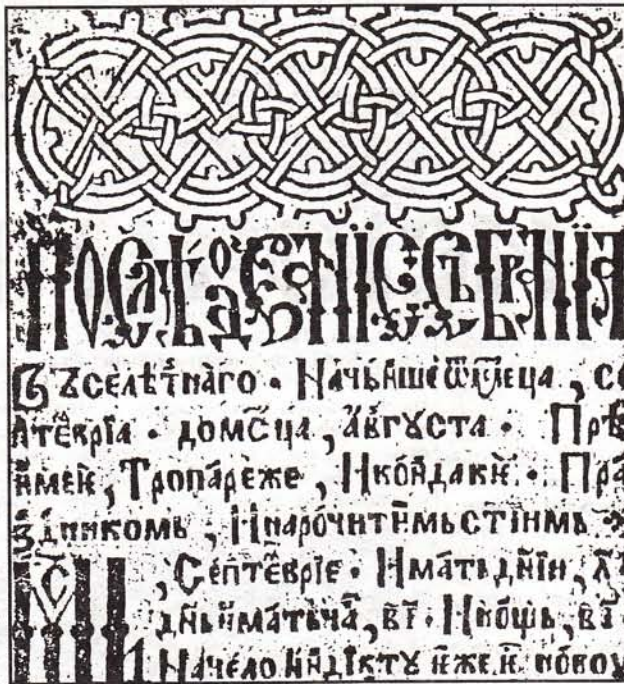 ПОСЛѢДОВАНІЕ СЪБРАНІꙖ
Въселѣ́тнаго · Наче́ньше ѿ мⷭ҇ца , се
птеⷨ҇врїа · до мⷭ҇ца , а҆ѵ҆гꙋста · Прѣ
и҆ме́и҆ , Тропа́реже , И҆ко́ндаки҆ · Пра́
здникомь , И҆ наро́читыи҆мь ст҃їимь
Мⷭ҇ц , Септеⷨ҇врїе · И҆мать дн҃їи , л҃
дн҃ь и҆мать ча̑ , в҃і · И҆ но́щь , в҃і ·
Начело и҆ндікту и҆же и҆ новоу